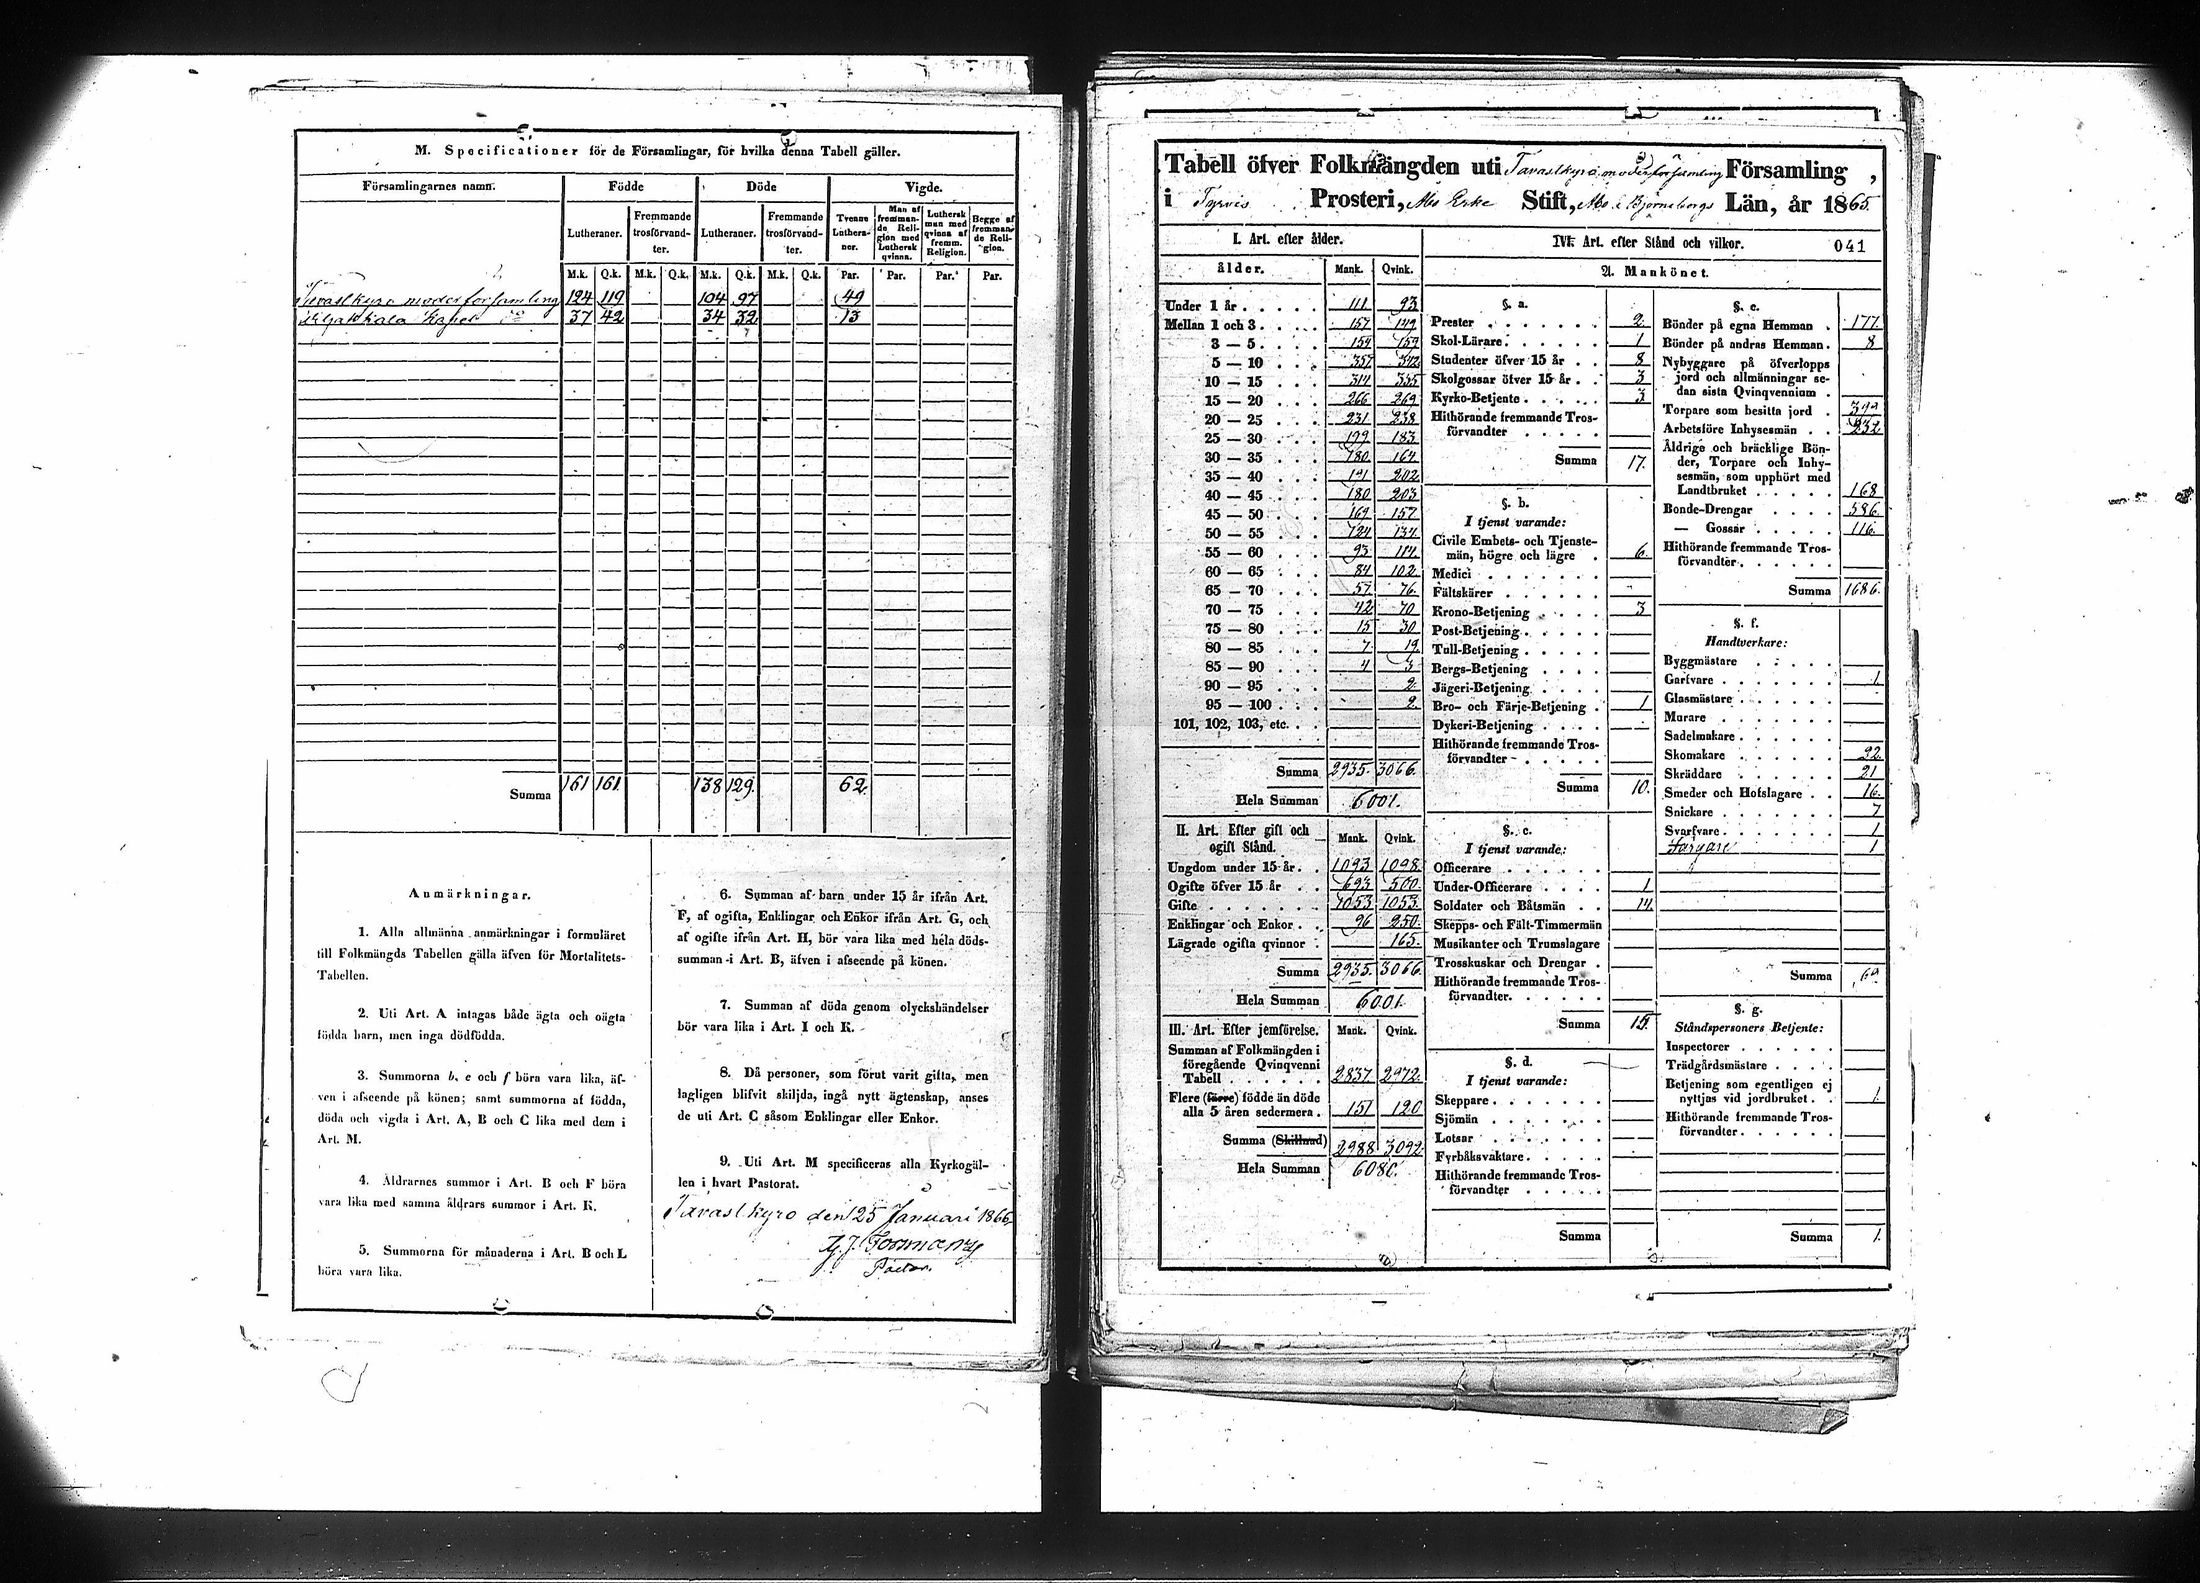 M. Specificationer för de Församlingar, för hvilka denna Tabell gäller.
Församlingarnes namn. Födde Döde Vigde.
Lutheraner. Fremmande trosförvandter. Lutheraner. Fremmande trosförvandter. Tvenne Lutheraner. Man af fremmande Religion med Luthersk qvinna. Luthersk man med qvinna af fremm. Religion. Begge af fremmande Religion.
M.k. Q.k. M.k. Q.k. M.k. Q.k. M.k. Q.k. Par. Par. Par. Par.
Tavastkyro moderförsamling 124 119 104 97 49
Kapel do 37 42 34 32 13
Summa 161 161 138 129 62
Anmärkningar.
1. Alla allmänna anmärkningar i formuläret
till Folkmängds Tabellen gälla äfven för Mortalitets-
Tabellen.
2. Uti Art. A intagas både ägta och oägta
födda barn, men inga dödfödda.
3. Summorna b, e och f böra vara lika, äf-
ven i afseende på könen; samt summorna af födda,
döda och vigda i Art. A, B och C lika med dem i
Art. M.
4. Åldrarnes summor i Art. B och F böra
vara lika med samma åldrars summor i Art. K.
5. Summorna för månaderna i Art. B och L
böra vara lika.
6. Summan af barn under 15 år ifrån Art.
F, af ogifta, Enklingar och Enkor ifrån Art. G, och
af ogifte ifrån Art. H, bör vara lika med hela döds-
summan i Art. B, äfven i afseende på könen.
7. Summan af döda genom olyckshändelser
bör vara lika i Art. I och K.
8. Då personer, som förut varit gifta, men
lagligen blifvit skiljda, ingå nytt ägtenskap, anses
de uti Art. C såsom Enklingar eller Enkor.
9. Uti Art. M specificeras alla Kyrkogäl-
len i hvart Pastorat.
Tavastkyro den 25 Januari 1866.
Pastor.
Tabell öfver Folkmängden uti Tavastkyro moderförsamling Församling,
i Tyrvis Prosteri, Åbo Erke Stift, Åbo & Björneborgs Län, år 1865.
I. Art. efter ålder.
ålder. Mank. Qvink.
Under 1 år 111 93
Mellan 1 och 3 157 149
3 — 5 154 159
5 — 10 357 342
10 — 15 314 355
15 — 20 266 269
20 — 25 231 238
25 — 30 199 183
30 — 35 180 164
35 — 40 191 202
40 — 45 180 203
45 — 50 169 157
50 — 55 124 134
55 — 60 93 114
60 — 65 84 102
65 — 70 57 76
70 — 75 42 70
75 — 80 15 30
80 — 85 7 19
85 — 90 4 3
90 — 95 2
95 — 100 2
101, 102, 103, etc.
Summa 2935. 3066.
Hela Summan 6001.
II. Art. Efter gift och ogift Stånd. Mank. Qvink.
Ungdom under 15 år 1093 1098
Ogifte öfver 15 år 693 500
Gifte 1053 1053
Enklingar och Enkor 96 250
Lägrade ogifta qvinnor 165
Summa 2935 3066
Hela Summan 6001.
III. Art. Efter jemförelse. Mank. Qvink.
Summan af Folkmängden i
föregående Qvinqvenni
Tabell 2837 2972
Flere (färre) födde än döde
alla 5 åren sedermera 151 120
Summa (Skillnad) 2988 3092
Hela Summan 6080.
IV. Art. efter Stånd och vilkor. 041
A. Mankönet.
§. a.
Prester 2
Skol-Lärare 1
Studenter öfver 15 år 8
Skolgossar öfver 15 år 3
Kyrko-Betjente 3
Hithörande fremmande Tros-
förvandter
Summa 17.
§. b.
I tjenst varande:
Civile Embets- och Tjenste-
män, högre och lägre 6
Medici
Fältskärer
Krono-Betjening 3
Post-Betjening
Tull-Betjening
Bergs-Betjening
Jägeri-Betjening
Bro- och Färje-Betjening 1
Dykeri-Betjening
Hithörande fremmande Tros-
förvandter
Summa 10.
§. c.
I tjenst varande:
Officerare
Under-Officerare 1
Soldater och Båtsmän 14
Skepps- och Fält-Timmermän
Musikanter och Trumslagare
Trosskuskar och Drengar
Hithörande fremmande Tros-
förvandter.
Summa 15.
§. d.
I tjenst varande:
Skeppare
Sjömän
Lotsar
Fyrbåksvaktare
Hithörande fremmande Tros-
förvandter
Summa
§. e.
Bönder på egna Hemman 177
Bönder på andras Hemman 8
Nybyggare på öfverlopps
jord och allmänningar se-
dan sista Qvinqvennium
Torpare som besitta jord
Arbetsföre Inhysesmän 232
Åldrige och bräcklige Bön-
der, Torpare och Inhy-
sesmän, som upphört med
Landtbruket 168
Bonde-Drengar 586
— Gossar 116
Hithörande fremmande Tros-
förvandter
Summa 1686.
§. f.
Handtverkare:
Byggmästare
Garfvare 1
Glasmästare
Murare
Sadelmakare
Skomakare 22
Skräddare 21
Smeder och Hofslagare 16
Snickare 7
Svarfvare 1
Färgare 1
Summa 69
§. g.
Ståndspersoners Betjente:
Inspectorer
Trädgårdsmästare
Betjening som egentligen ej
nyttjas vid jordbruket 1
Hithörande fremmande Tros-
förvandter
Summa 1.